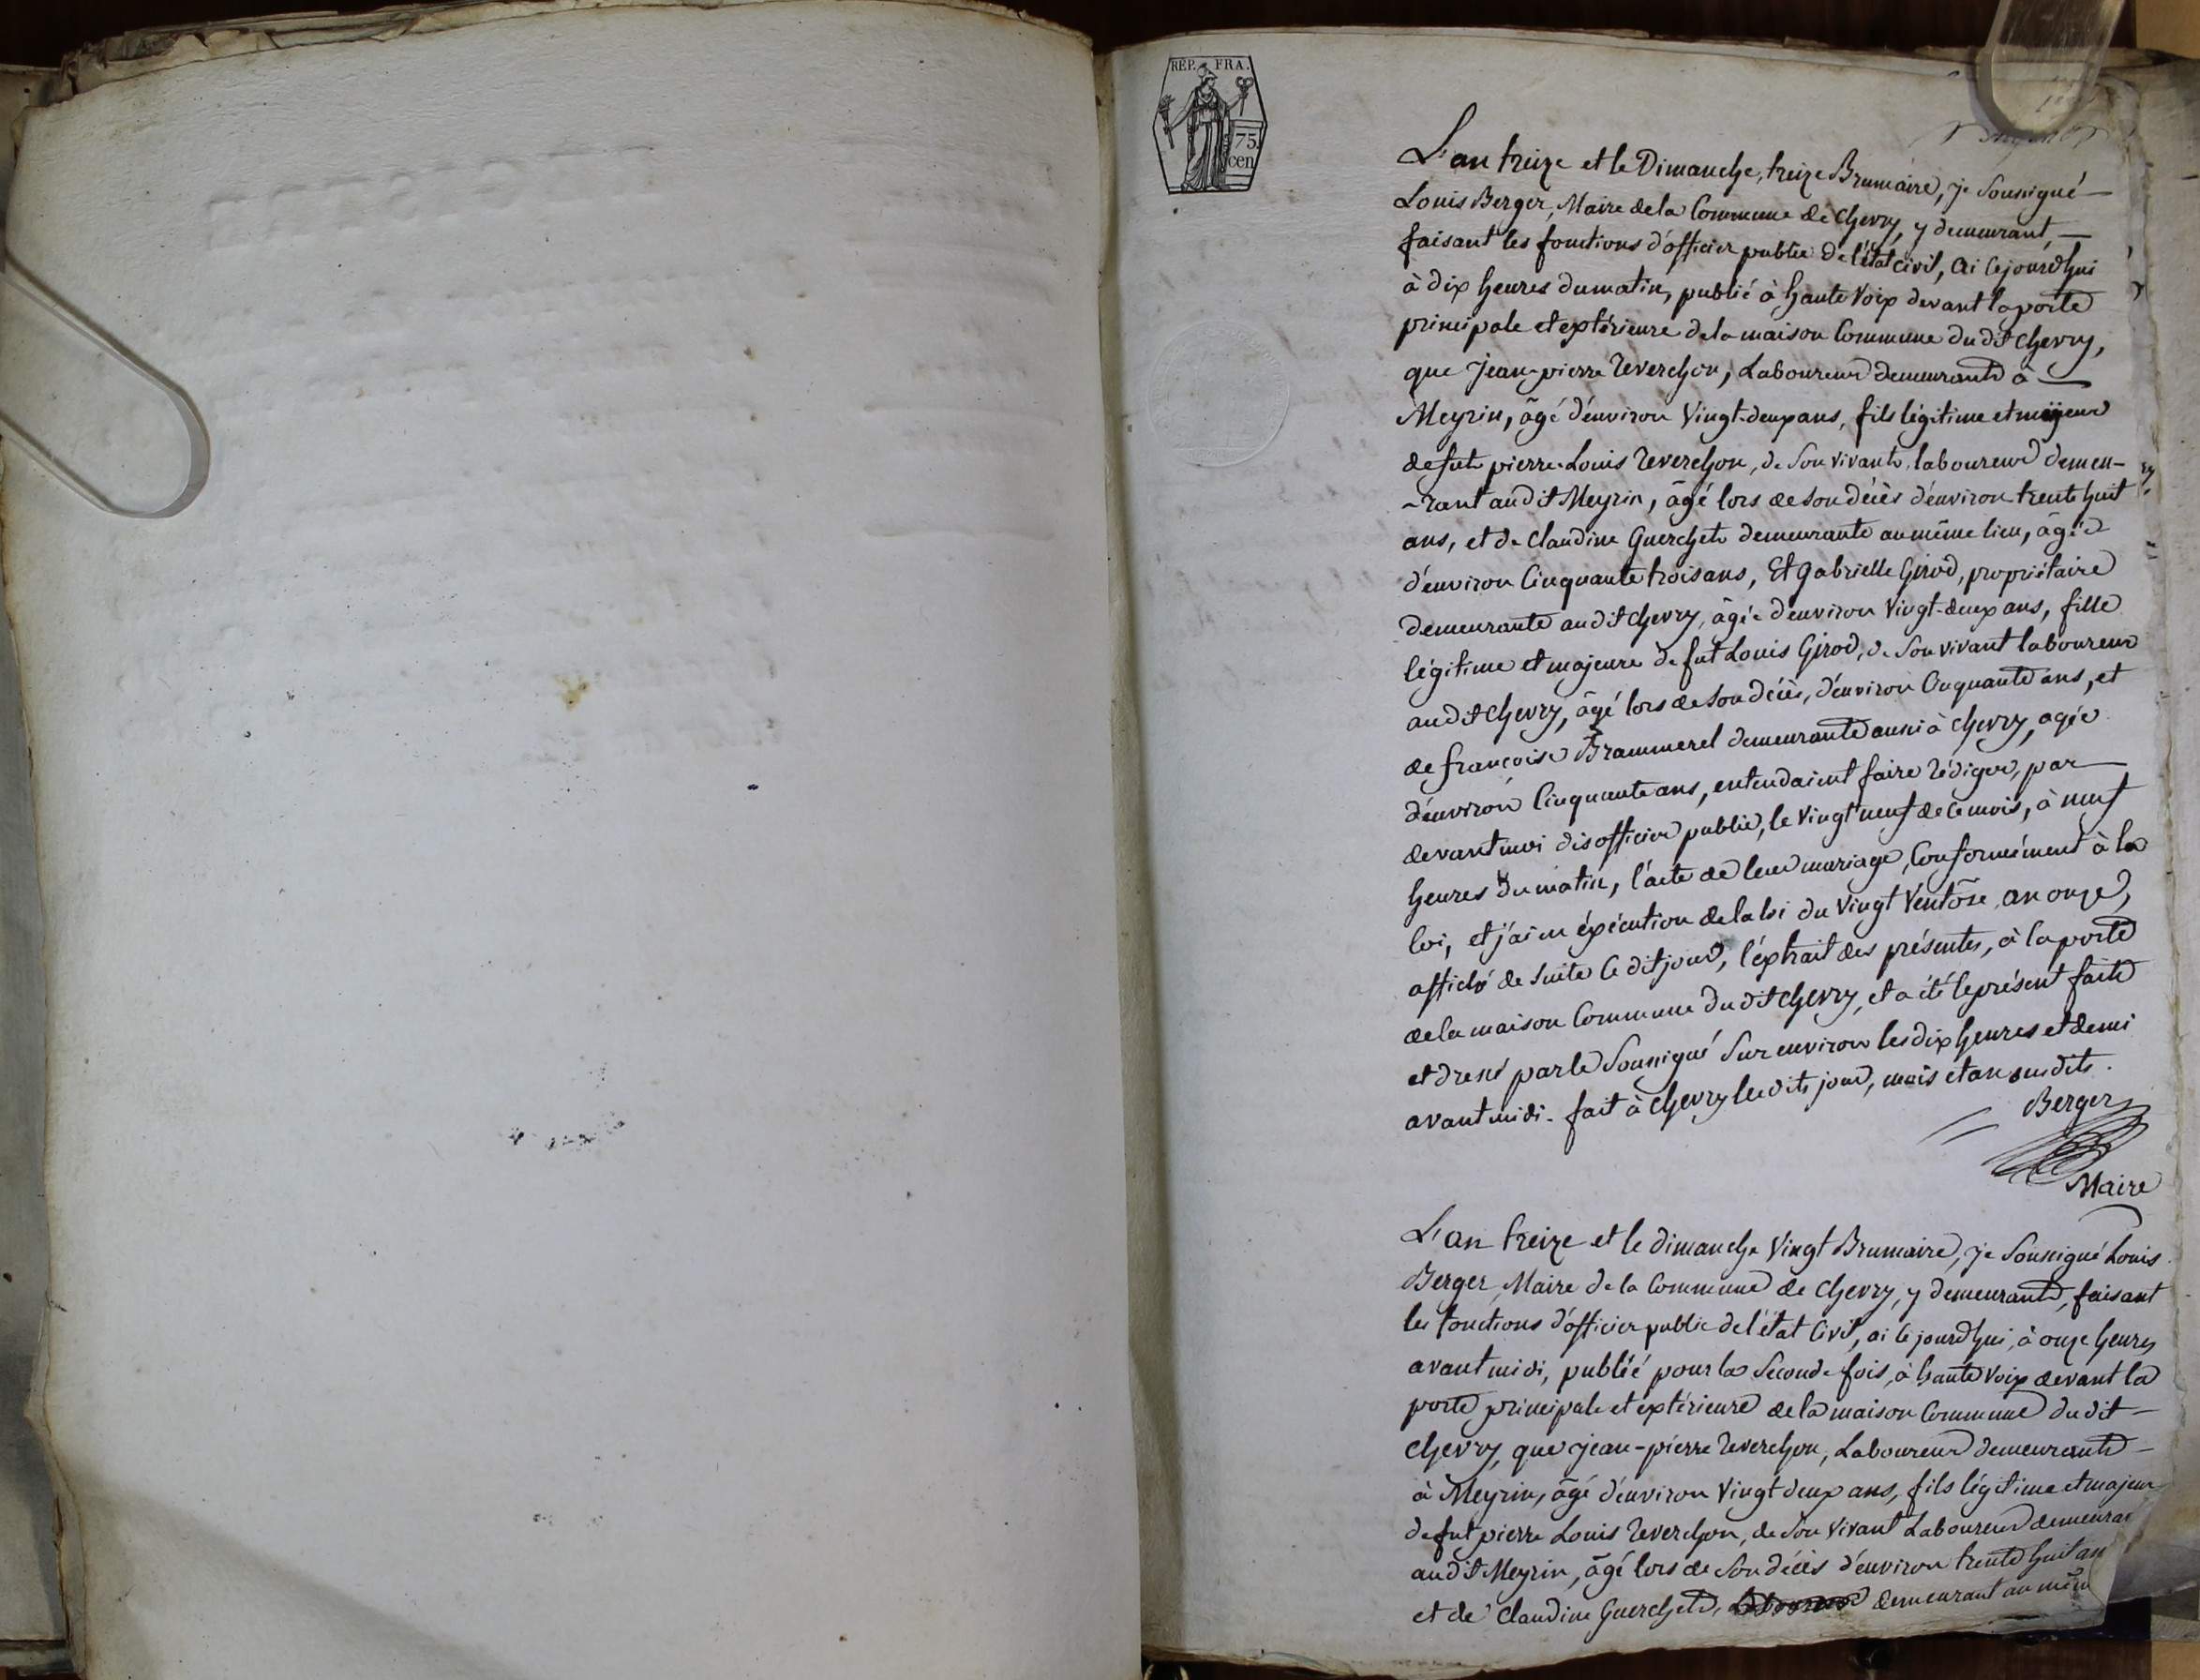 REP. FRA.
75.
cen
L'an treize et le Dimanche, treize Brumaire, je soussigné —
Louis Berger, Maire de la Commune de Chevry, y demeurant, —
faisant les fonctions d'officier public de l'état civil, ai cejourd'hui
à dix heures du matin, publié à haute voix devant la porte
principale et extérieure de la maison Commune du dit Chevry,
que Jean-pierre Reverchon, Laboureur demeurant à —
Meyrin, âgé d'environ Vingt-deux ans, fils légitime et majeur
de fut pierre-Louis Reverchon, de son vivant, laboureur demeu-
-rant audit Meyrin, âgé lors de son décès d'environ trente huit
ans, et de Claudine Guerchet demeurante au même lieu, âgée
d'environ Cinquante trois ans, Et Gabrielle Girod, propriétaire
demeurante audit Chevry, âgée d'environ Vingt-deux ans, fille
légitime et majeure de fut Louis Girod, de son vivant laboureur
audit Chevry, âgé lors de son décès, d'environ Cinquante ans, et
de françoise Brammerel demeurante aussi à Chevry, agée
d'environ Cinquante ans, entendaient faire rédiger, par —
devant moi dis officier public, le Vingt neuf de ce mois, à neuf
heures du matin, l'acte de leur mariage, Conformément à la
loi, et j'ai en éxécution de la loi du Vingt Ventôse an onze,
affiché de suite ce dit jour, l'éxtrait des présentes, à la porte
de la maison Commune du dit Chevry, et a été le présent fait
et dressé par le Soussigné Sur environ les dix heures et demi
avant midi. fait à Chevry les dits jour, mois et an susdits.
Berger
Maire
L'an treize et le dimanche Vingt Brumaire, je Soussigné Louis
Berger, Maire de la Commune de Chevry, y demeurant, faisant
les fonctions d'officier public de l'état Civil, ai ce jourd'hui, à onze heures
avant midi, publié pour la Seconde fois, à haute voix devant la
porte principale et éxtérieure de la maison Commune du dit —
Chevry, que Jean-pierre Reverchon, Laboureur demeurant —
à Meyrin, âgé d'environ Vingt deux ans, fils légitime et majeur
de fut pierre Louis Reverchon, de Son Vivant Laboureur demeurar
audit Meyrin, âgé lors de Son décès d'environ trente huit an
et de Claudine Guerchet, demeurant au mêm